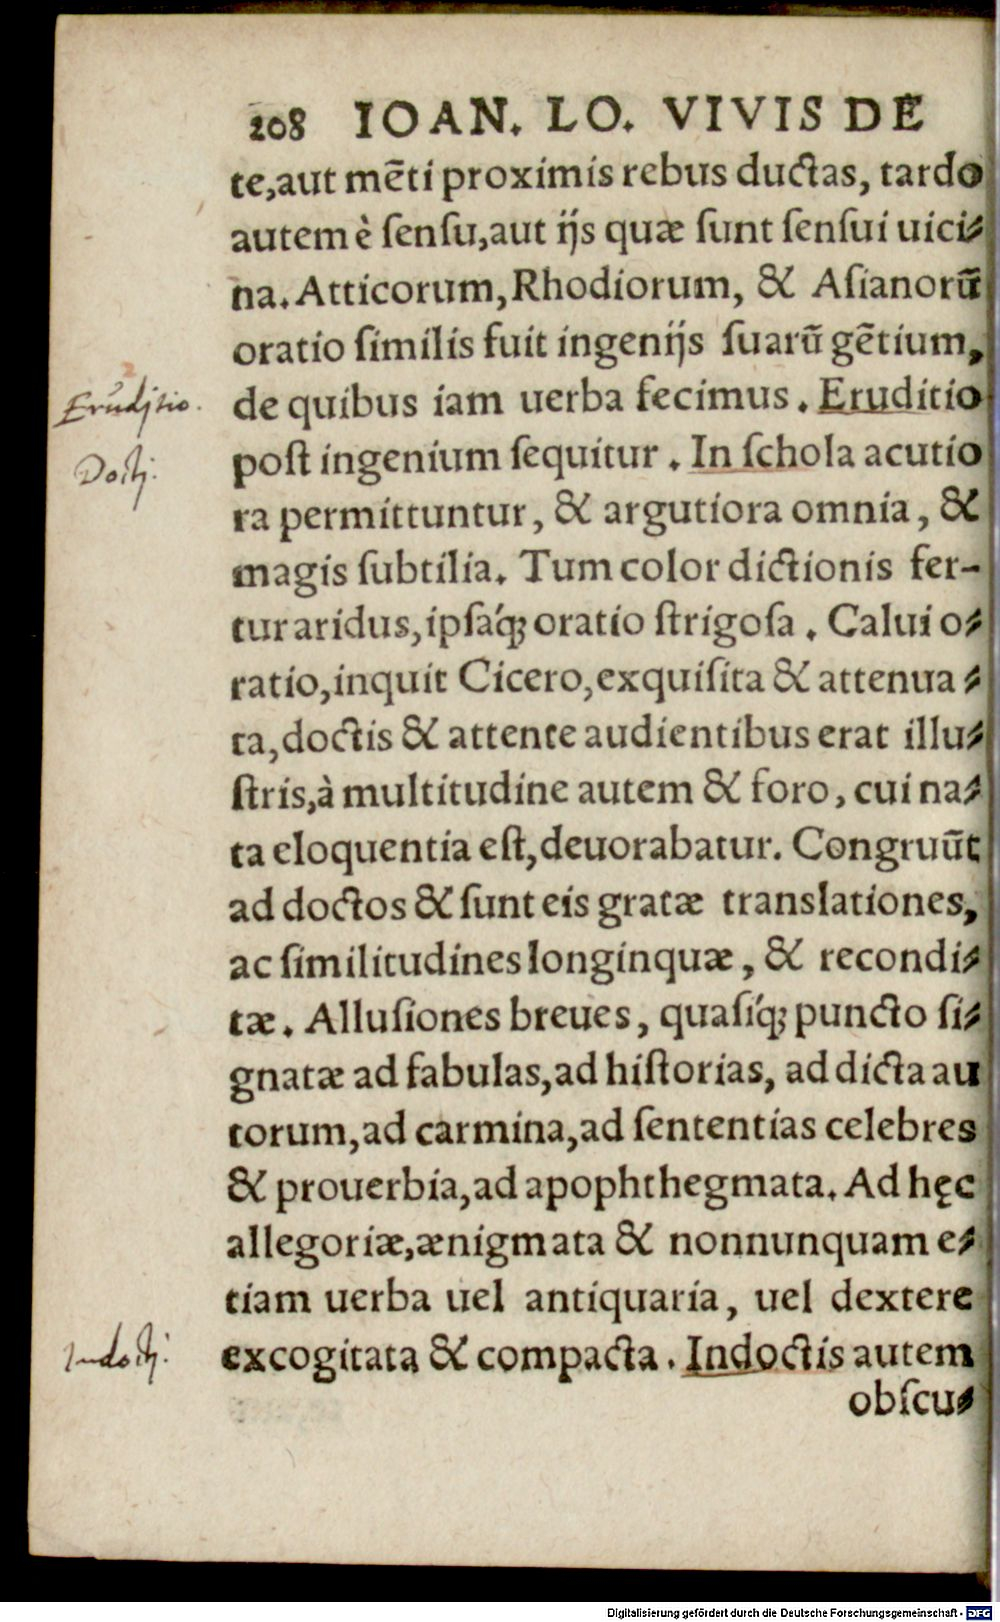 208 IOAN. LO. VIVIS DE
te,aut mẽti proximis rebus ductas, tardo
autem è ſenſu,aut ijs quæ ſunt ſenſui uici⸗
na. Atticorum, Rhodiorum, & Aſianorũ
oratio ſimilis fuit ingenijs ſuarũ gẽtium,
Eruditio. de quibus iam uerba fecimus. Eruditio
Docti. poſt ingenium ſequitur. In ſchola acutio
ra permittuntur, & argutiora omnia, &
magis ſubtilia. Tum color dictionis fer-
tur aridus, ipſaq́; oratio ſtrigoſa. Calui o⸗
ratio, inquit Cicero, exquiſita & attenua⸗
ta, doctis & attente audientibus erat illu⸗
ſtris, à multitudine autem & foro, cui na⸗
ta eloquentia eſt, deuorabatur. Congruũt
ad doctos & ſunt eis gratæ translationes,
ac ſimilitudines longinquæ, & recondi⸗
tæ. Alluſiones breues, quaſiq́; puncto ſi⸗
gnatæ ad fabulas, ad hiſtorias, ad dicta au
torum, ad carmina, ad ſententias celebres
& prouerbia, ad apophthegmata. Ad hęc
allegoriæ, ænigmata & nonnunquam e⸗
tiam uerba uel antiquaria, uel dextere
Indocti. excogitata & compacta. Indoctis autem
obſcu⸗
Digitalisierung gefördert durch die Deutsche Forschungsgemeinschaft - DFG